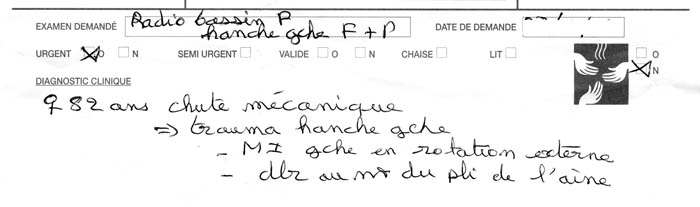 EXAMEN DEMANDÉ Radio bassin F DATE DE DEMANDE
hanche gche F + P
URGENT O N SEMI URGENT VALIDE O N CHAISE LIT O
N
DIAGNOSTIC CLINIQUE
♀ 82 ans chute mécanique
⇒ trauma hanche gche
- MI gche en rotation externe
- dlr au nv du pli de l'aine